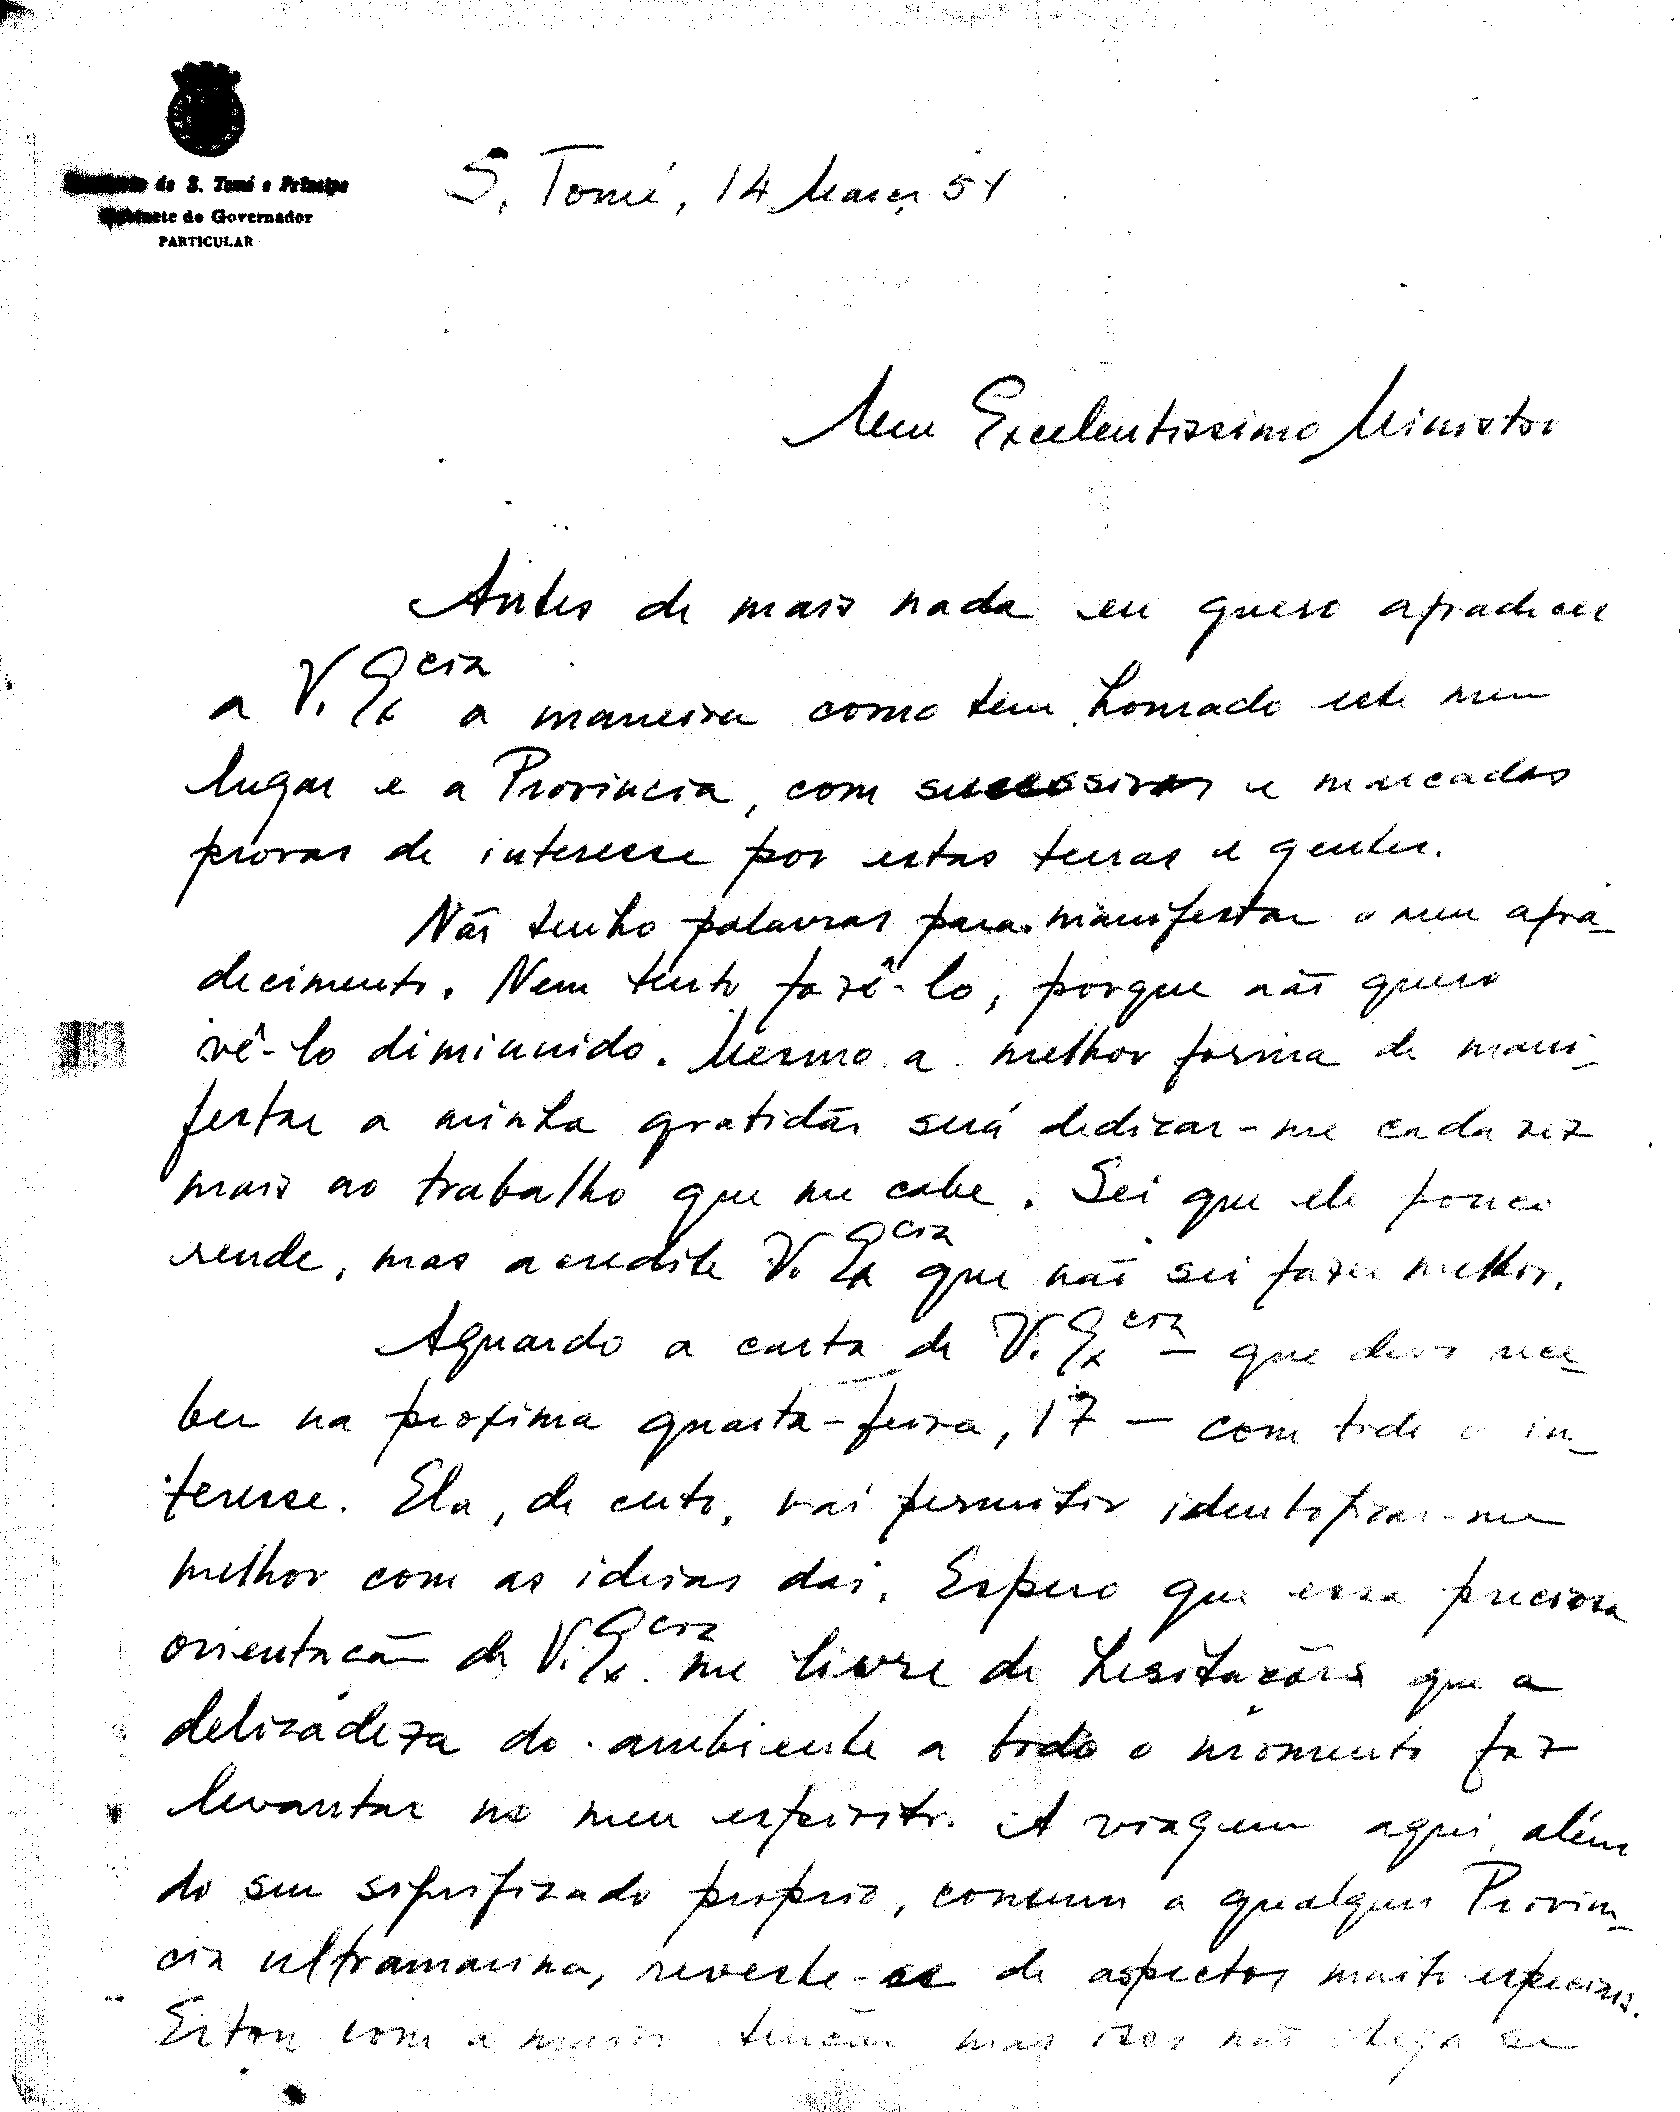 de S. Tomé e Príncipe
Gabinete do Governador
PARTICULAR
S. Tomé, 14 Março 54
Meu Excelentissimo Ministro
Antes de mais nada eu quero agradecer
a V. Excia a maneira como tem honrado este meu
lugar e a Provincia, com sucessivas e marcadas
provas de interesse por estas terras e gentes.
Não tenho palavras para manifestar o meu agra-
decimento. Nem tento fazê-lo, porque não quero
vê-lo diminuido. Mesmo a melhor forma de mani-
festar a minha gratidão será dedicar-me cada vez
mais ao trabalho que me cabe. Sei que ele pouco
rende, mas acredite V. Excia que não sei fazer melhor.
Aguardo a carta de V. Excia - que devo rece-
ber na proxima quarta-feira, 17 - com todo o in-
teresse. Ela, de certo, vai permitir identificar-me
melhor com as ideias daí. Espero que essa preciosa
orientação de V. Excia me livre de hesitações que a
delicadeza do ambiente a todo o momento faz
levantar no meu espirito. A viagem aqui, além
do seu significado proprio, comum a qualquer Provin-
cia ultramarina, reveste-se de aspectos muito especiais.
Estou com a maior tenção mas isso não chega se